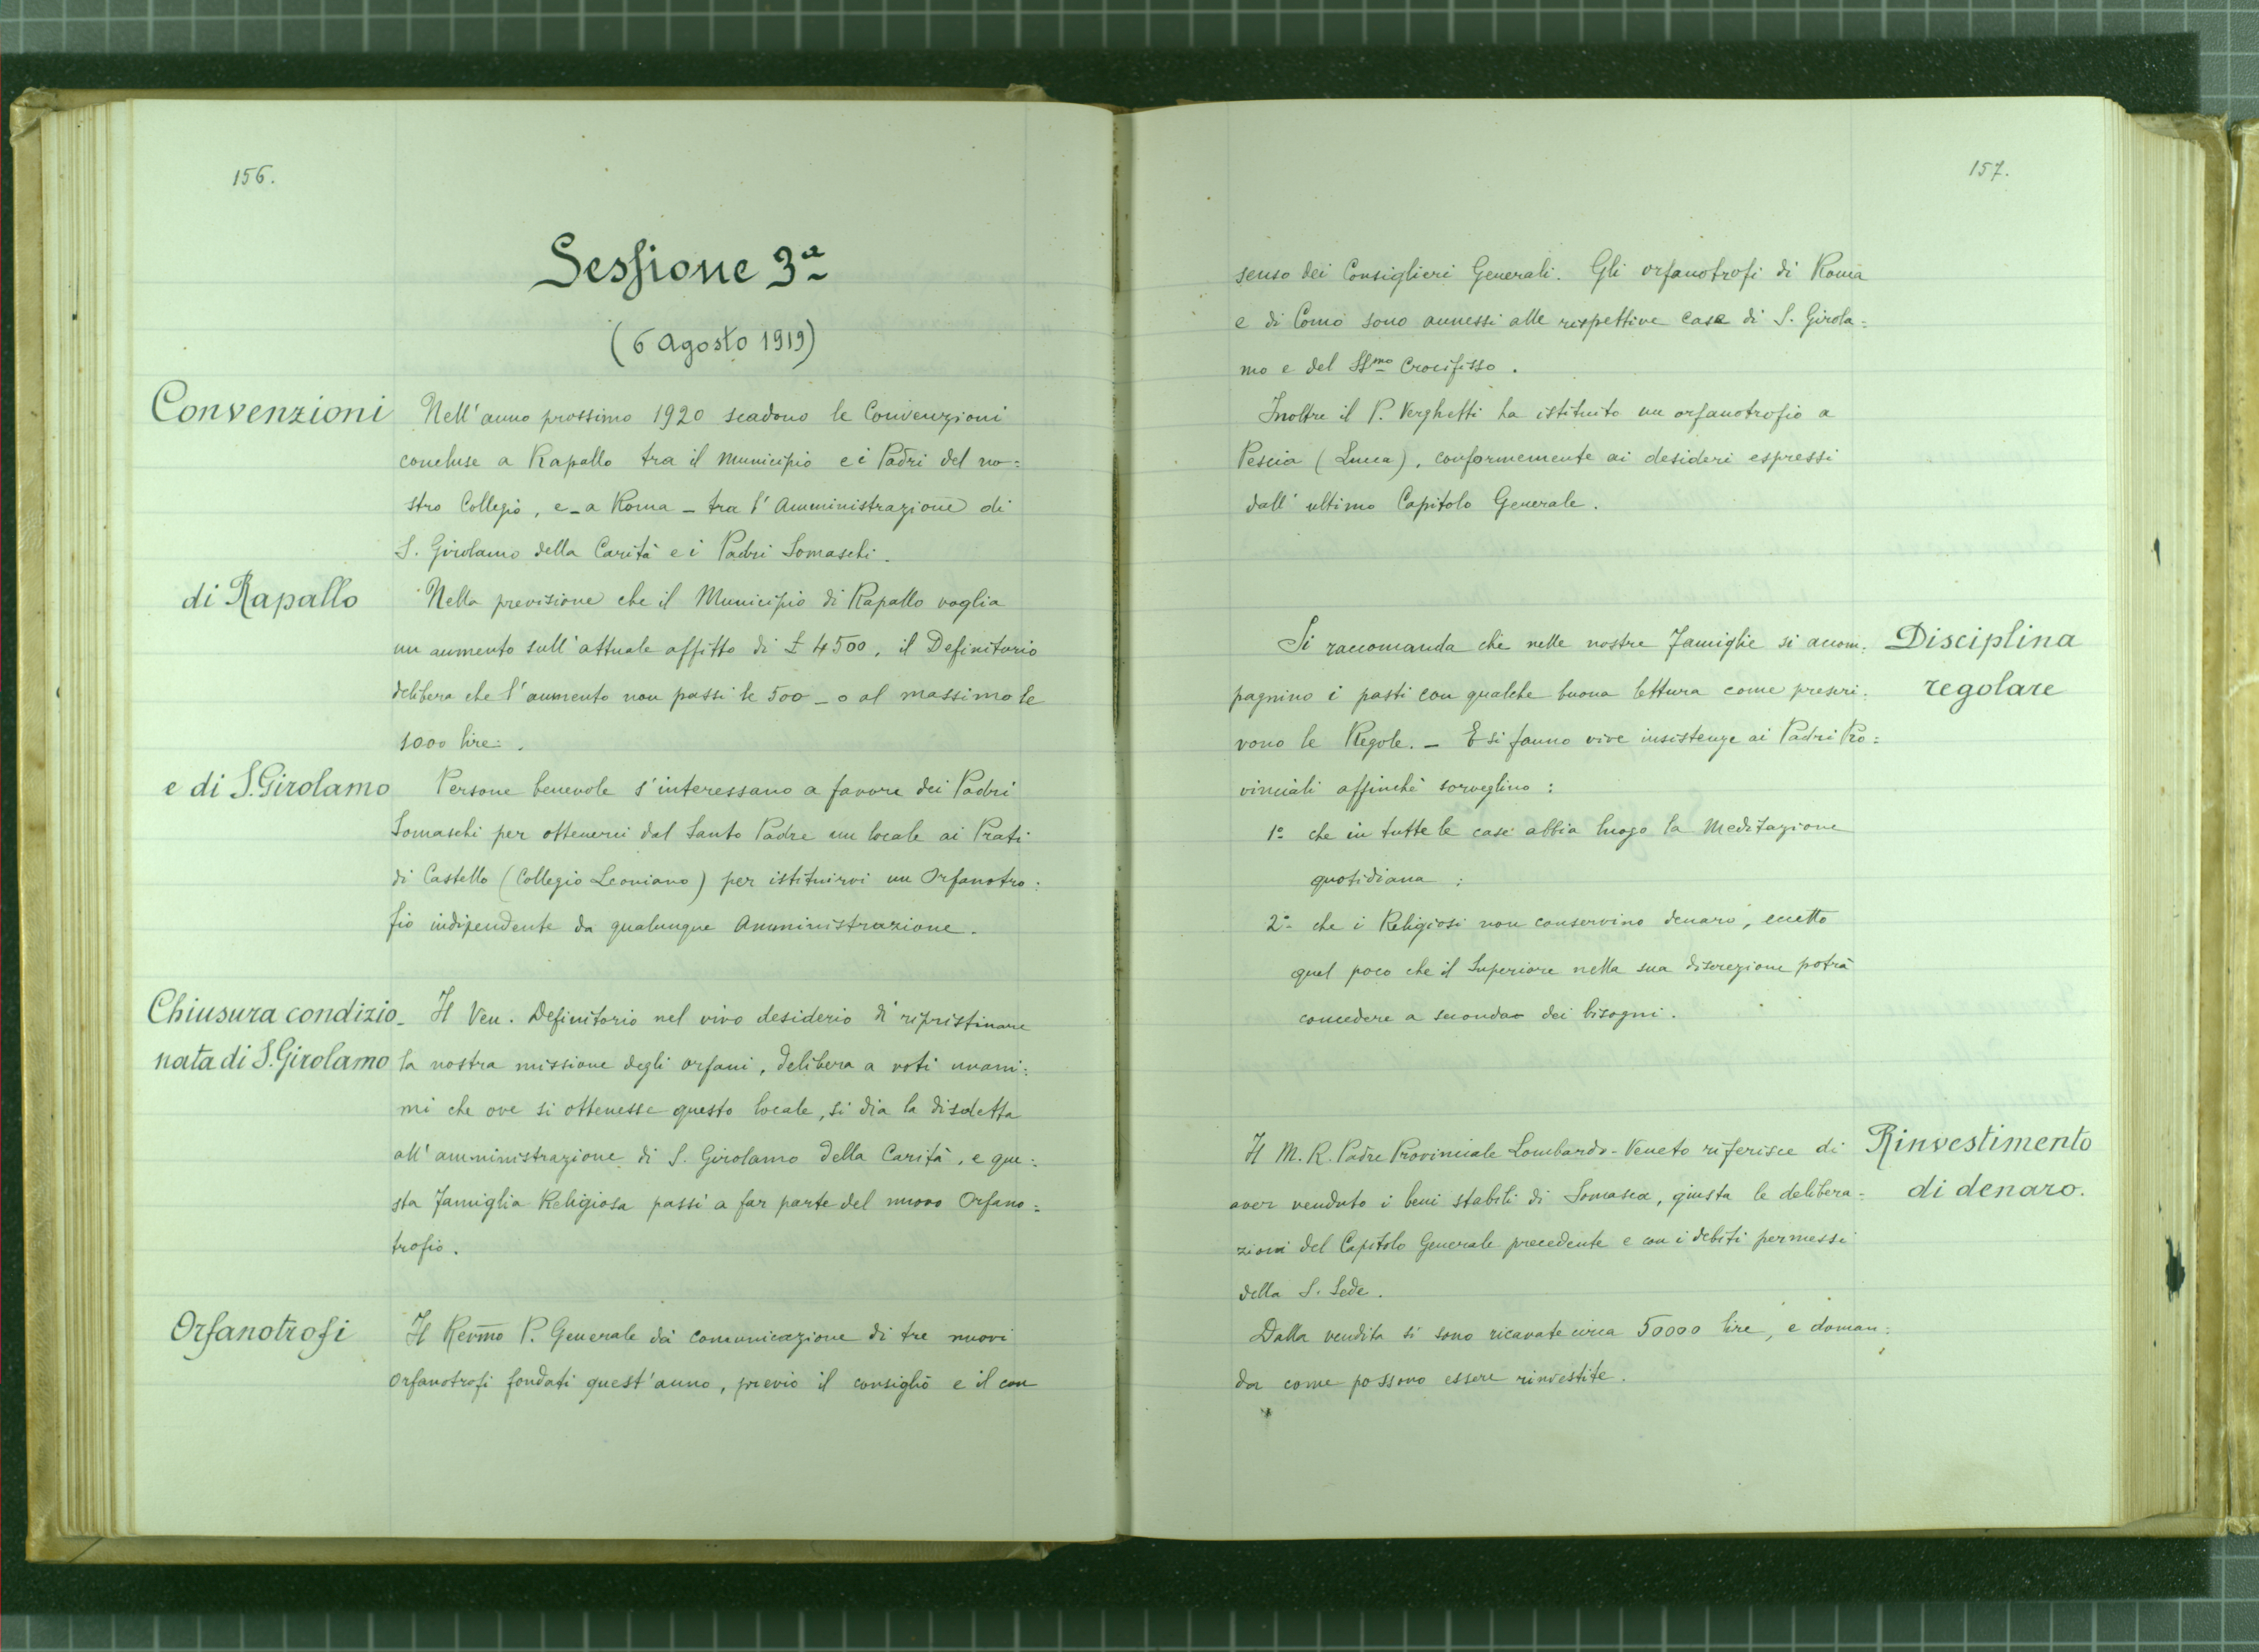 156.
Sessione 3ª
(6 Agosto 1919)
Convenzioni
Nell'anno prossimo 1920 scadono le Convenzioni
concluse a Rapallo tra il Municipio e i Padri del no=
stro Collegio, e - a Roma - tra l'Amministrazione di
S. Girolamo della Carità e i Padri Somaschi.
di Rapallo
Nella previsione che il Municipio di Rapallo voglia
un aumento sull'attuale affitto di £ 4500, il Definitorio
delibera che l'aumento non passi le 500 - o al massimo le
1000 lire.
e di S. Girolamo
Persone benevole s'interessano a favore dei Padri
Somaschi per ottenerci dal Santo Padre un locale ai Prati
di Castello (Collegio Leoniano) per istituirvi un Orfanotro=
fio indipendente da qualunque Amministrazione.
Chiusura condizio-
nata di S. Girolamo
Il Ven. Definitorio nel vivo desiderio di ripristinare
la nostra missione degli orfani, delibera a voti unani=
mi che ove si ottenesse questo locale, si dia la disdetta
all'amministrazione di S. Girolamo della Carità, e que=
sta famiglia Religiosa passi a far parte del nuovo Orfano=
trofio.
Orfanotrofi
Il Rev̅mo P. Generale dà comunicazione di tre nuovi
Orfanotrofi fondati quest'anno, previo il consiglio e il con
157.
senso dei Consiglieri Generali. Gli orfanotrofi di Roma
e di Como sono annessi alle rispettive case di S. Girola=
mo e del SSmo Crocifisso.
Inoltre il P. Verghetti ha istituito un orfanotrofio a
Pescia (Lucca), conformemente ai desideri espressi
dall'ultimo Capitolo Generale.
Disciplina
regolare
Si raccomanda che nelle nostre famiglie si accom=
pagnino i pasti con qualche buona lettura come prescri=
vono le Regole. - E si fanno vive insistenze ai Padri Pro=
vinciali affinchè sorveglino:
1º che in tutte le case abbia luogo la Meditazione
quotidiana;
2º che i Religiosi non conservino denaro, eccetto
quel poco che il Superiore nella sua discrezione potrà
concedere a seconda dei bisogni.
Rinvestimento
di denaro.
Il M. R. Padre Provinciale Lombardo-Veneto riferisce di
aver venduto i beni stabili di Somasca, giusta le delibera=
zioni del Capitolo Generale precedente e con i debiti permessi
della S. Sede.
Dalla vendita si sono ricavate circa 50000 lire, e doman=
da come possono essere rinvestite.